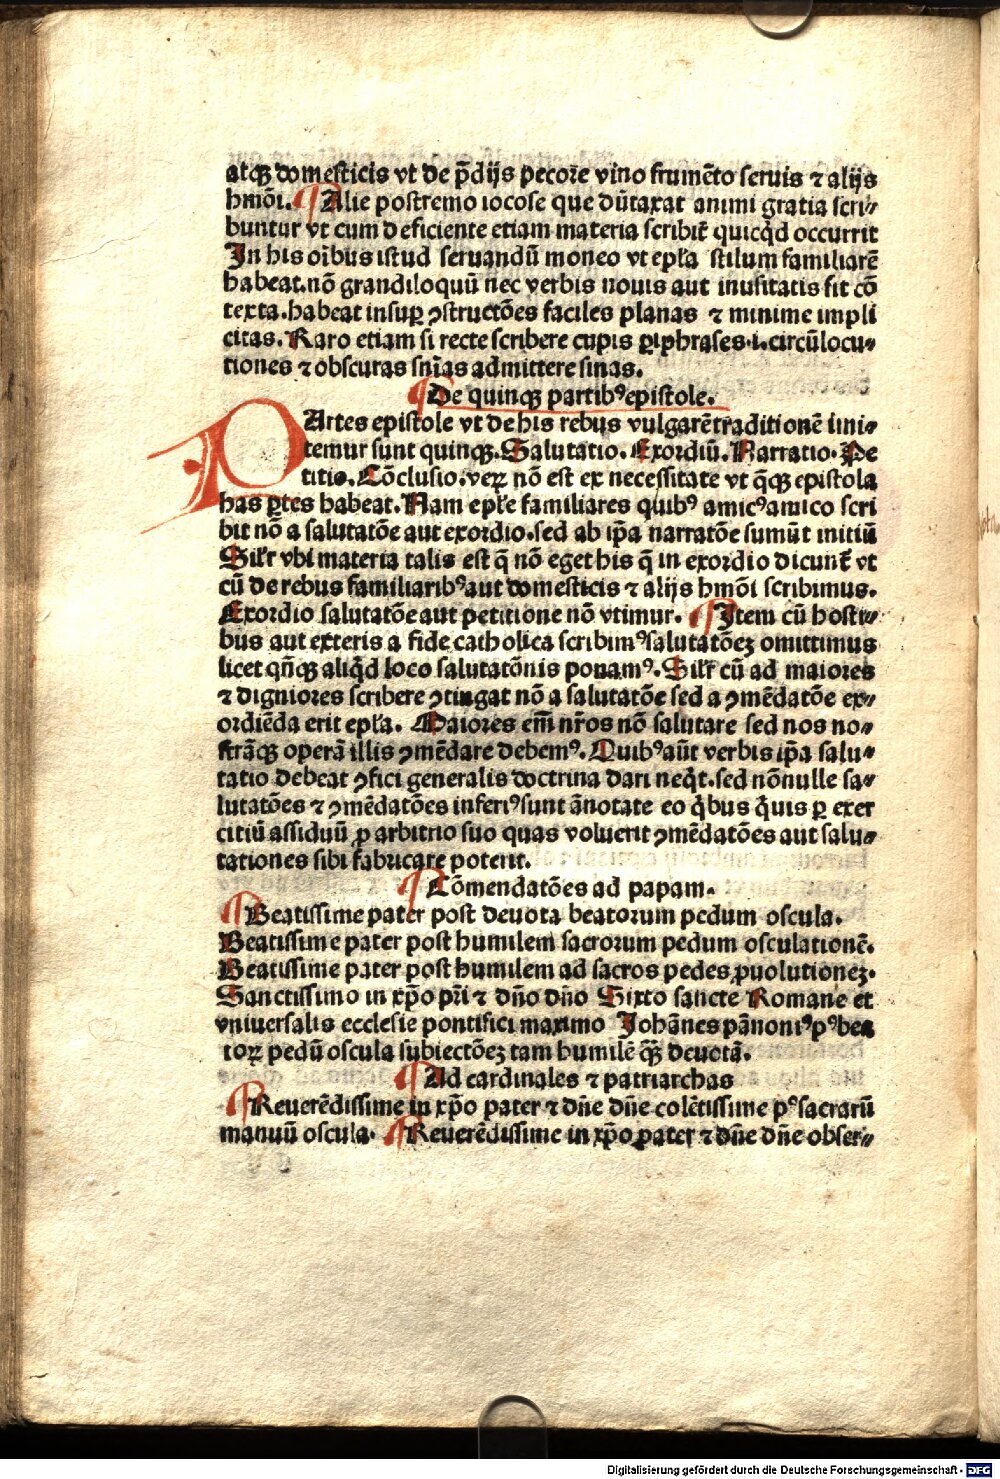 atqꝫ domesticis vt de p̄dijs pecore vino frumēto seruis ⁊ alijs
hmōi. Alie postremo iocose que dūtaxat animi gratia scri⸗
buntur vt cum deficiente etiam materia scribit᷑ quicq̇d occurrit
In his oībus istud seruandū moneo vt epl̄a stilum familiarē
habeat.nō grandiloquū nec verbis nouis aut inusitatis sit cō
texta.habeat insuꝑ ꝯstructōes faciles planas ⁊ minime impli
citas. Raro etiam si recte scribere cupis ꝑiphrases.i.circūlocu⸗
tiones ⁊ obscuras sn̄ias admittere sinas.
De quinqꝫ partibꝰ epistole.
PArtes epistole vt de his rebus vulgarē traditionē imi⸗
temur sunt quinqꝫ. Salutatio. Exordiū. Narratio. Pe
titio. Cōclusio. veꝝ nō est ex necessitate vt q̄qꝫ epistola
has ꝑtes habeat. Nam epl̄e familiares quibꝰ amicꝰ amico scri
bit nō a salutatōe aut exordio.sed ab ip̄a narratōe sumūt initiū
Sil̄r vbi materia talis est q̄ nō eget his q̄ in exordio dicunt᷑ vt
cū de rebus familiaribꝰ aut domesticis ⁊ alijs hmōi scribimus.
Exordio salutatōe aut petitione nō vtimur. Item cū hosti⸗
bus aut exteris a fide catholica scribimꝰ salutatōeꝫ omittimus
licet qn̄qꝫ aliq̇d loco salutatōnis ponamꝰ. Sil̄r cū ad maiores
⁊ digniores scribere ꝯtingat nō a salutatōe sed a ꝯmēdatōe ex⸗
ordiēda erit epl̄a. Maiores em̄ nr̄os nō salutare sed nos no⸗
strāqꝫ operā illis ꝯmēdare debemꝰ. Quibꝰ aūt verbis ip̄a salu⸗
tatio debeat ꝯfici generalis doctrina dari neq̇t.sed nōnulle sa⸗
lutatōes ⁊ ꝯmēdatōes inferiꝰ sunt ānotate eo q̇bus q̇uis ꝑ exer
citiū assiduū ꝓ arbitrio suo quas voluerit ꝯmēdatōes aut salu⸗
tationes sibi fabricare poterit.
Cōmendatōes ad papam.
Beatissime pater post deuota beatorum pedum oscula.
Beatissime pater post humilem sacrorum pedum osculationē.
Beatissime pater post humilem ad sacros pedes ꝓuolutioneꝫ.
Sanctissimo in xp̄o pr̄i ⁊ dn̄o dn̄o Sixto sancte Romane et
vniuersalis ecclesie pontifici maximo Johānes pānoniꝰ pꝰ bea
toꝝ pedū oscula subiectōeꝫ tam humilē q̄ꝫ deuotā.
Ad cardinales ⁊ patriarchas
Reuerēdissime in xp̄o pater ⁊ dn̄e dn̄e colētissime pꝰ sacrarū
manuū oscula. Reuerēdissime in xp̄o pater ⁊ dn̄e dn̄e obser⸗
Digitalisierung gefördert durch die Deutsche Forschungsgemeinschaft - DFG